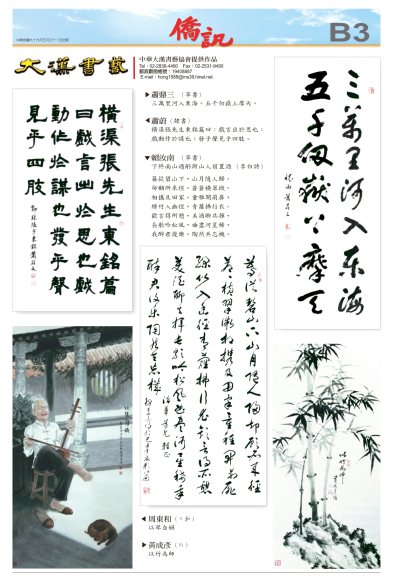 僑訊
B3
大漢書藝
中華大漢書藝協會提供作品
Tel・02-2836-4460 Fax・02-2531-9490
郵政劃撥帳號：19408987
E-mail：hong1588@ms39.hinet.net
▶蕭鼎三（草書）
三萬里河入東海，五千仞嶽上摩天。
◀蕭蔚（隸書）
橫渠張先生東銘篇曰：戲言出於思也；
戲動作於謀也；發乎聲見乎四肢。
▼顧汝南（草書）
下終南山過斛斯山人宿置酒（李白詩）
暮從碧山下，山月隨人歸。
卻顧所來徑，蒼蒼橫翠微。
相攜及田家，童稚開荊扉。
綠竹入幽徑，青蘿拂行衣。
歡言得所憩，美酒聊共揮。
長歌吟松風，曲盡河星稀。
我醉君復樂，陶然共忘機。
三萬里河入東海
五千仞嶽上摩天
橫渠張先生東銘篇
曰戲言出於思也戲
動作於謀也發乎聲
見乎四肢
暮從碧山下山月隨人歸卻顧所來徑
蒼蒼橫翠微相攜及田家童稚開荊扉
綠竹入幽徑青蘿拂行衣歡言得所憩
美酒聊共揮長歌吟松風曲盡河星稀我
醉君復樂陶然共忘機
◀周東和
以琴自娛
▶黃成彥
以竹為師